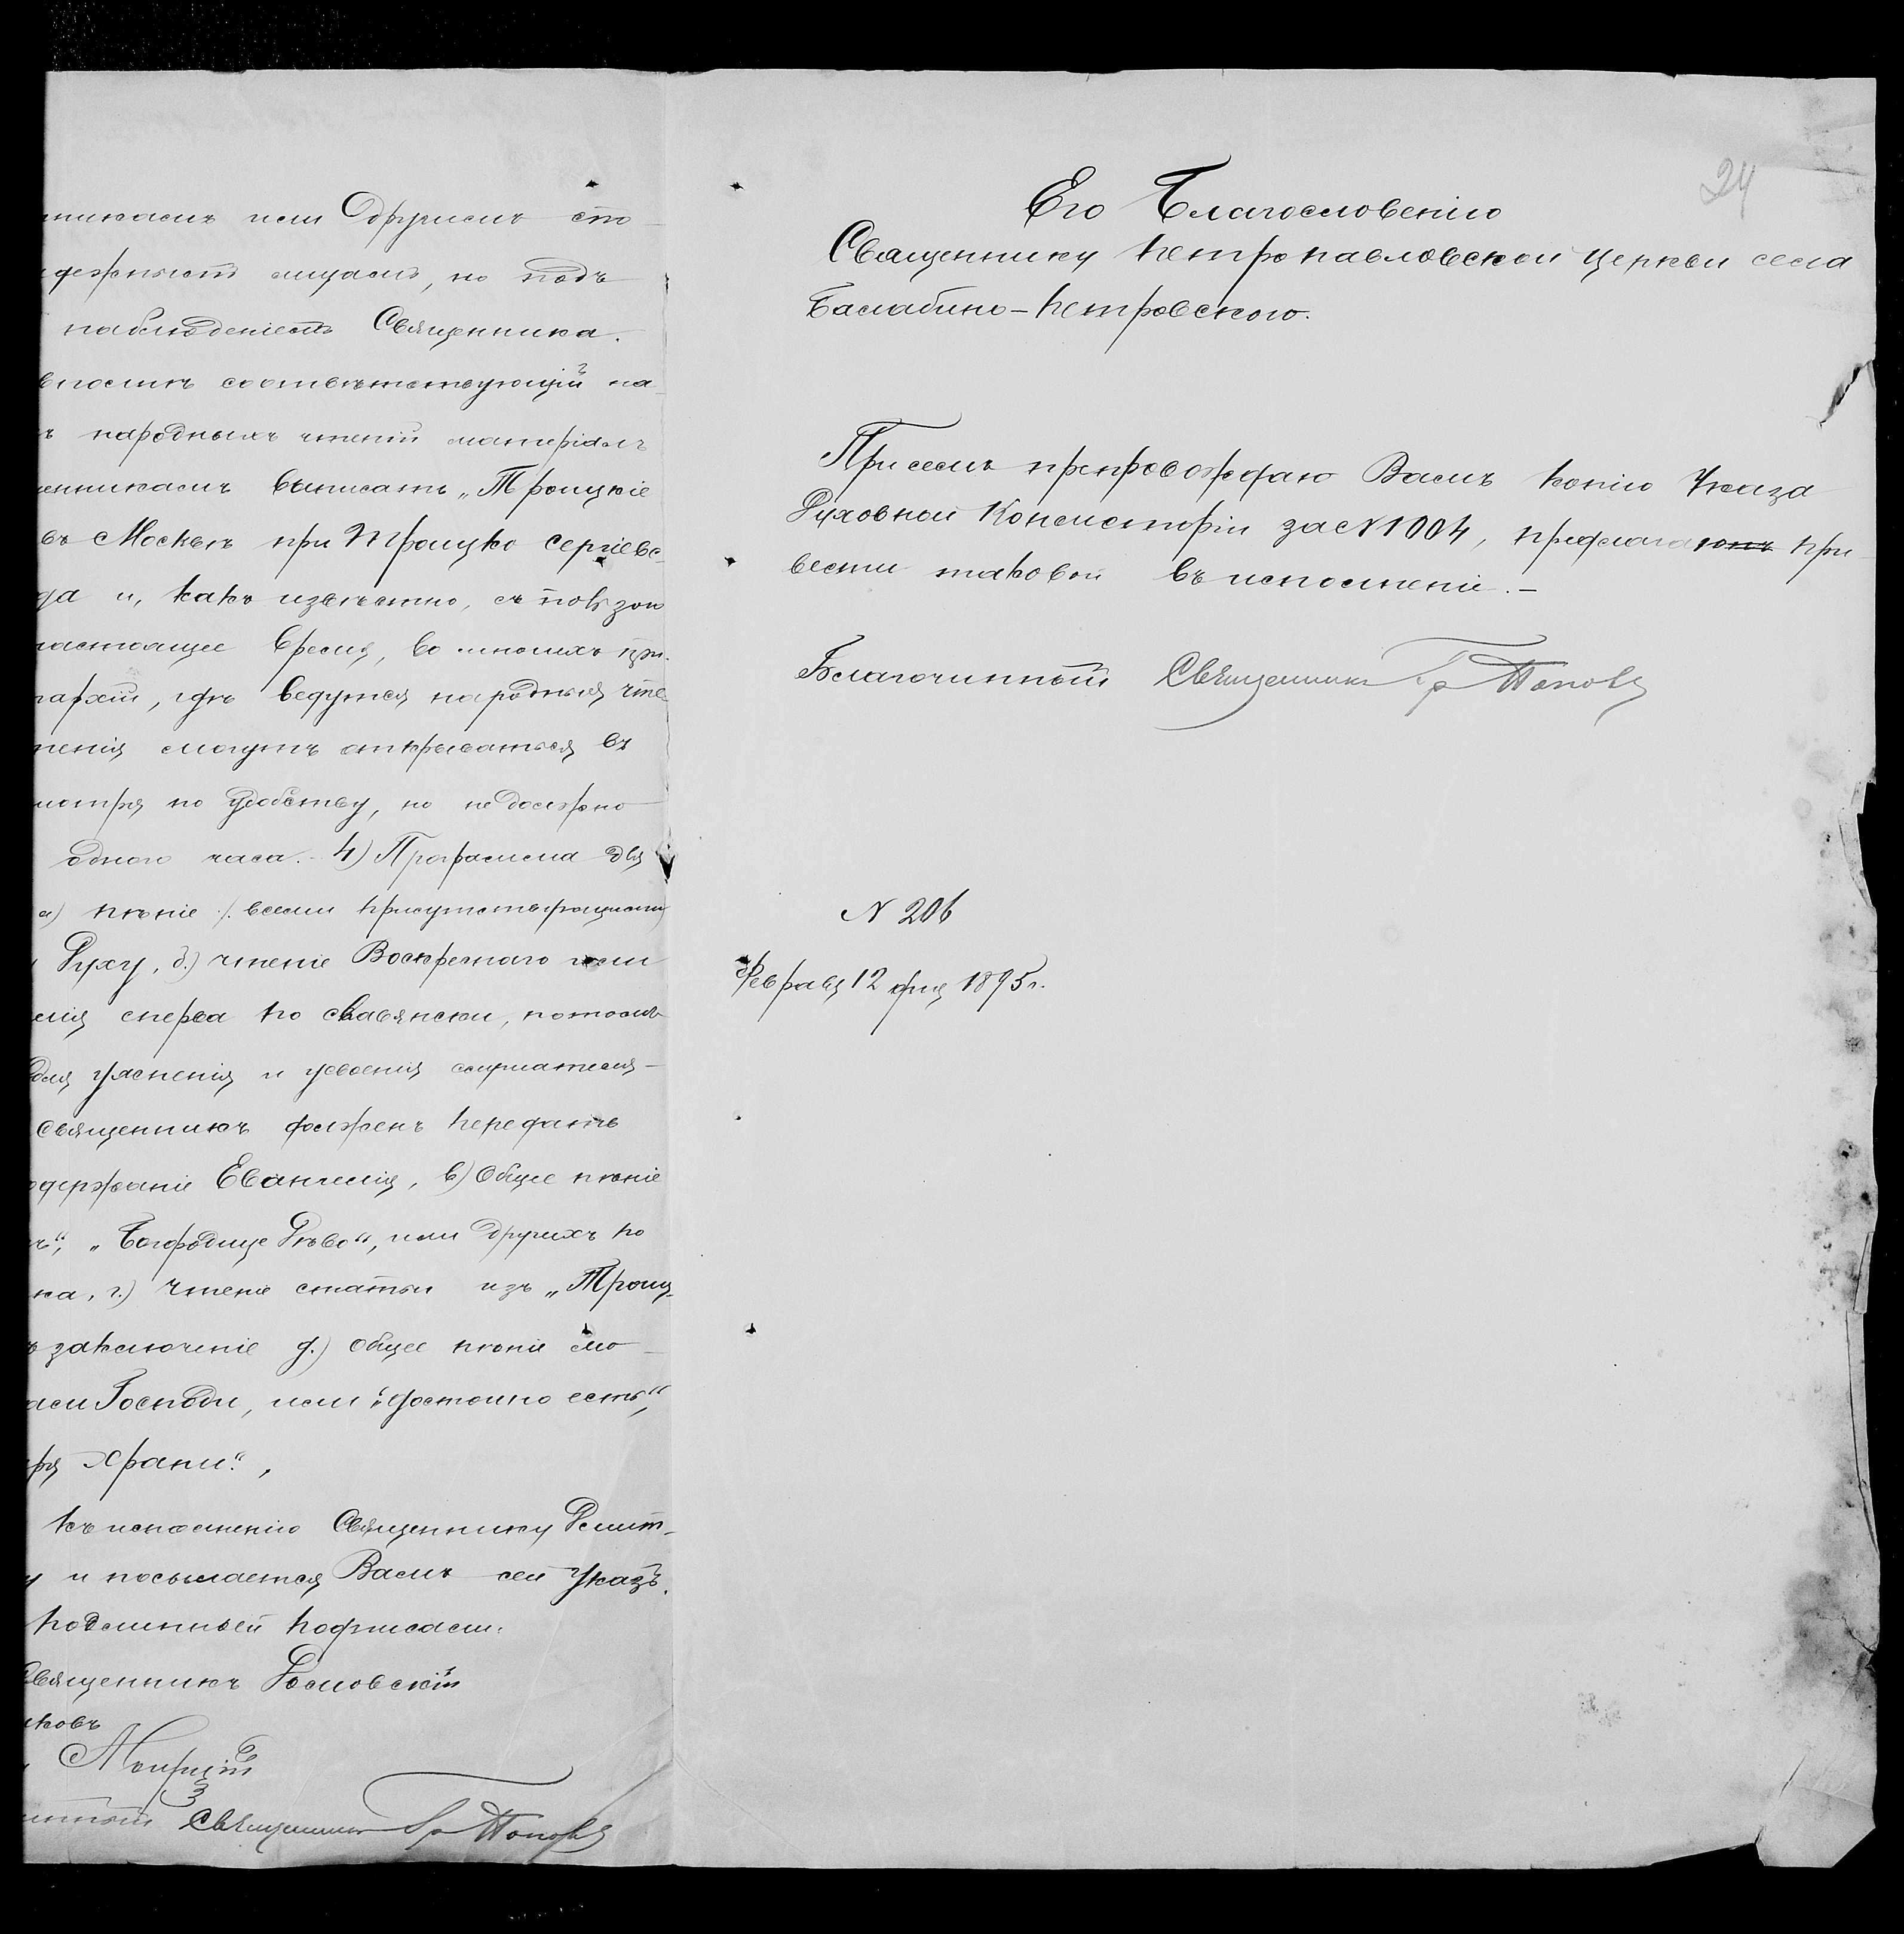 никамъ или Другимъ сто-
дежнымъ лицамъ, но подъ
наблюденіемъ Священника.
вполнѣ соотвѣтствующій на-
ъ народныхъ чтеній матеріалъ
енникамъ выписать „Троицкіе
въ Москвѣ при Троицко Сергіевс-
да и, какъ извѣстно, съ пользою
настоящее время, во многихъ при-
пархіи, гдѣ ведутся народныя чте
тенія могутъ открываться въ
мотря по удобству, но не должно
одного часа. 4) Программа для
а) пѣніе /. всеми присутствующими
Духу, б.) чтеніе Воскреснаго или
елія сперва по славянски, потомъ
для уясненія и усвоенія слушателя-
священникъ долженъ передать
одержаніе Евангелія, в) Общее пѣніе
ъ“, „Богородице Дѣво“, или другихъ по
ка, г.) Чтеніе статьи изъ „Троиц-
ъ заключеніе д.) общее пѣніе мо-
аси Господи, или „Достойно есть“,
ря храни“.,
къ исполненію Священнику Дмит-
у и посылается Вамъ сей Указъ.
подлинный подписали:
Священникъ
ковъ
Священникъ Гр Поповъ
24
Его Благословенію
Священнику Петропавловской Церкви села
Баслабино-Петровского.
При семъ препровождаю Вамъ копію Указа
Духовной Консисторіи за № 1004, предлагаютъ при-
вести таковой въ исполненіе.–
Благочинный Священникъ Гр Поповъ
№ 206
Февраля 12 дня 1895 г.